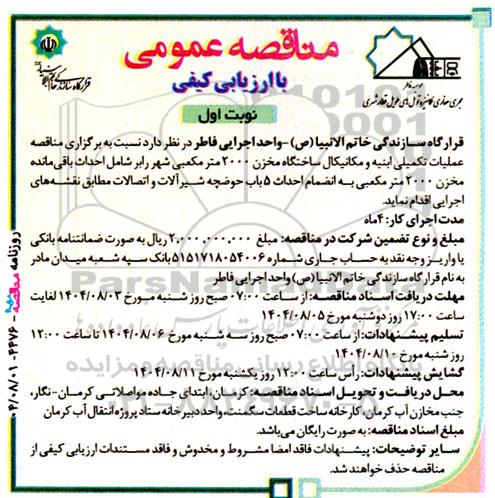 مناقصه عمومی
با ارزیابی کیفی
نوبت اول
قرارگاه سازندگی خاتم الانبیا (ص) -واحد اجرایی فاطر در نظر دارد نسبت به برگزاری مناقصه
عملیات تکمیلی ابنیه و مکانیکال ساختگاه مخزن ۲۰۰۰ متر مکعبی شهر رابر شامل احداث باقی‌مانده
مخزن ۲۰۰۰ متر مکعبی به انضمام احداث ۵ باب حوضچه شیرآلات و اتصالات مطابق نقشه‌های
اجرایی اقدام نماید.
مدت اجرای کار: ۴ماه
مبلغ و نوع تضمین شرکت در مناقصه: مبلغ ۲,۰۰۰,۰۰۰,۰۰۰ ریال به صورت ضمانتنامه بانکی
یا واریز وجه نقد به حساب جاری شماره ۵۱۵۱۷۱۸۰۵۴۰۰۶ بانک سپه شعبه میدان مادر
به نام قرارگاه سازندگی خاتم الانبیا (ص) واحد اجرایی فاطر
مهلت دریافت اسناد مناقصه: از ساعت ۰۷:۰۰ صبح روز شنبه مورخ ۱۴۰۴/۰۸/۰۳ لغایت
ساعت ۱۷:۰۰ روز دوشنبه مورخ ۱۴۰۴/۰۸/۰۵
تسلیم پیشنهادات: از ساعت ۰۷:۰۰ صبح روز سه شنبه مورخ ۱۴۰۴/۰۸/۰۶ تا ساعت ۱۲:۰۰
روز شنبه مورخ ۱۴۰۴/۰۸/۱۰
گشایش پیشنهادات: رأس ساعت ۱۲:۰۰ روز یکشنبه مورخ ۱۴۰۴/۰۸/۱۱
محل دریافت و تحویل اسناد مناقصه: کرمان، ابتدای جاده مواصلاتی کرمان-نگار،
جنب مخازن آب کرمان، کارخانه ساخت قطعات سگمنت، واحد دبیرخانه ستاد پروژه انتقال آب کرمان
مبلغ اسناد مناقصه: به صورت رایگان می‌باشد.
سایر توضیحات: پیشنهادات فاقد امضا مشروط و مخدوش و فاقد مستندات ارزیابی کیفی از
مناقصه حذف خواهند شد.
روزنامه مناقصه ۴۴۷۶ - ۰۴/۰۸/۰۱
ParsNamadData